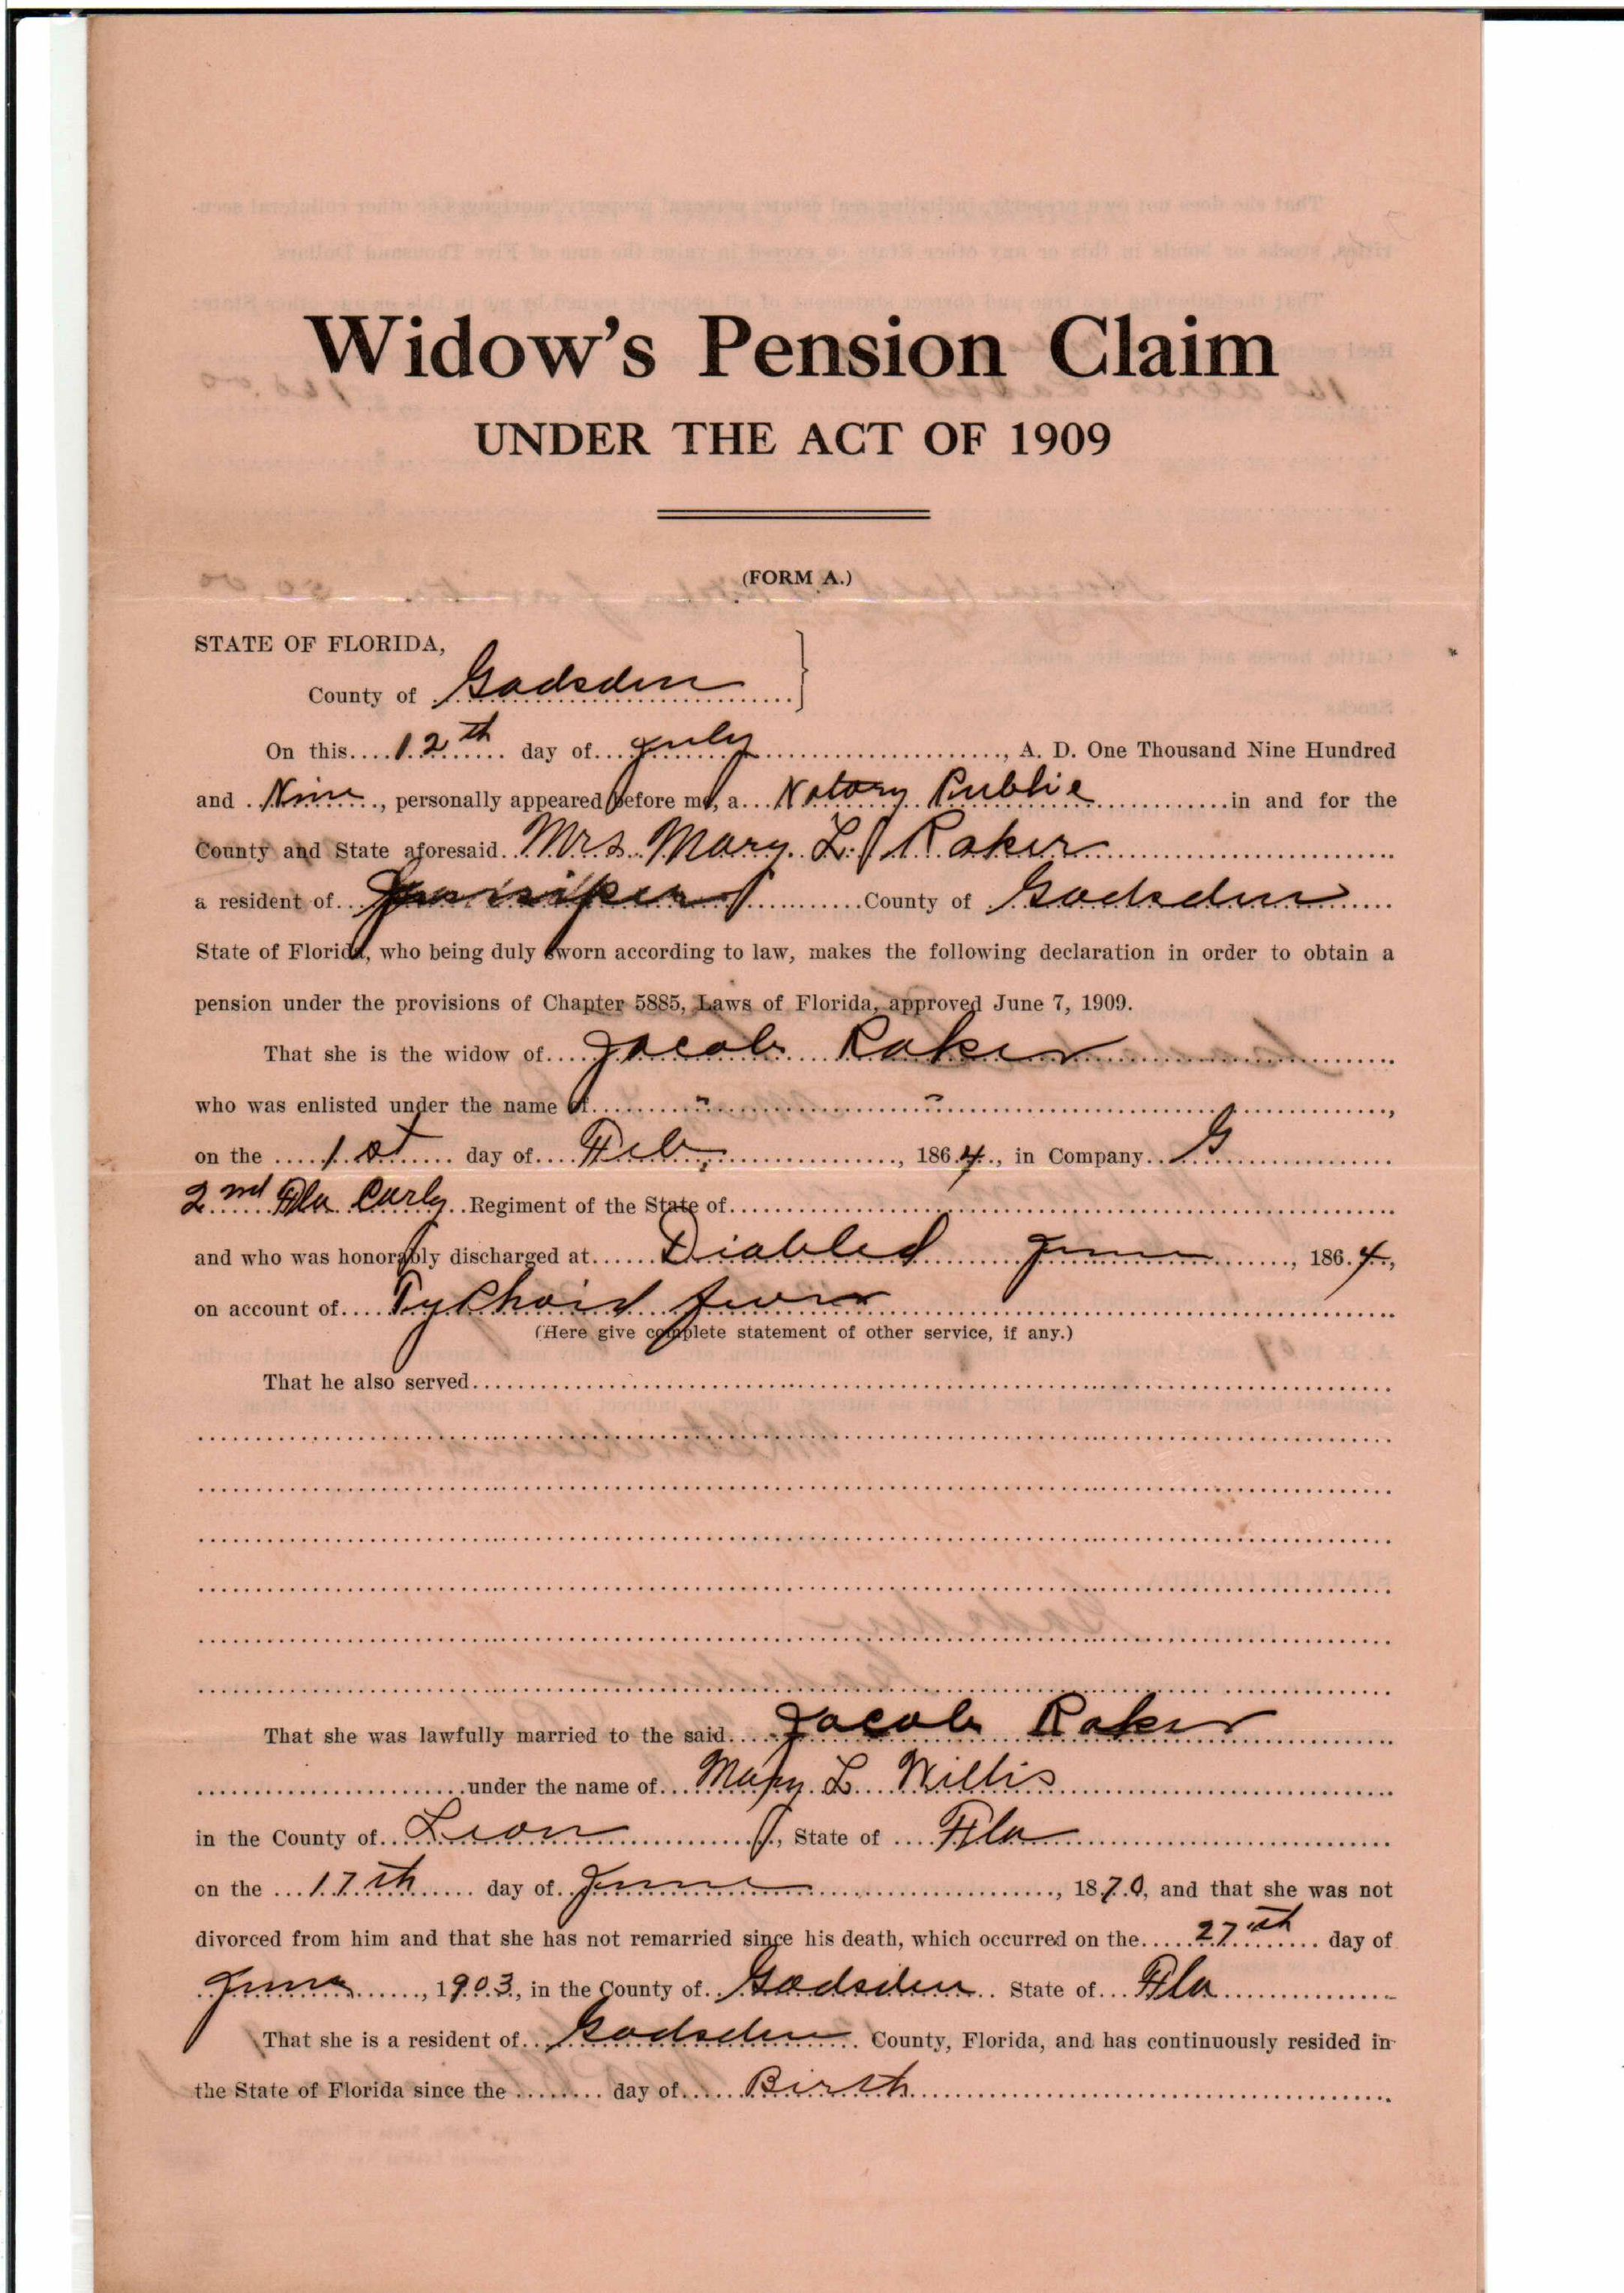 Widow's Pension Claim
UNDER THE ACT OF 1909
(FORM A.)
STATE OF FLORIDA,
County of Gadsden
On this 12th day of July, A. D. One Thousand Nine Hundred
and Nine, personally appeared before me, a Notary Public in and for the
County and State aforesaid Mrs Mary L. Raker
a resident of Juniper County of Gadsden
State of Florida, who being duly sworn according to law, makes the following declaration in order to obtain a
pension under the provisions of Chapter 5885, Laws of Florida, approved June 7, 1909.
That she is the widow of Jacob Raker
who was enlisted under the name of " "
on the 1st day of Feb, 1864, in Company G
2nd Fla Carly Regiment of the State of
and who was honorably discharged at Diabled June, 1864,
on account of Typhoid fever
(Here give complete statement of other service, if any.)
That he also served
That she was lawfully married to the said Jacob Raker
under the name of Mary L Willis
in the County of Leon, State of Fla
on the 17th day of June, 1870, and that she was not
divorced from him and that she has not remarried since his death, which occurred on the 27th day of
June, 1903, in the County of Gadsden State of Fla
That she is a resident of Gadsden County, Florida, and has continuously resided in
the State of Florida since the day of Birth